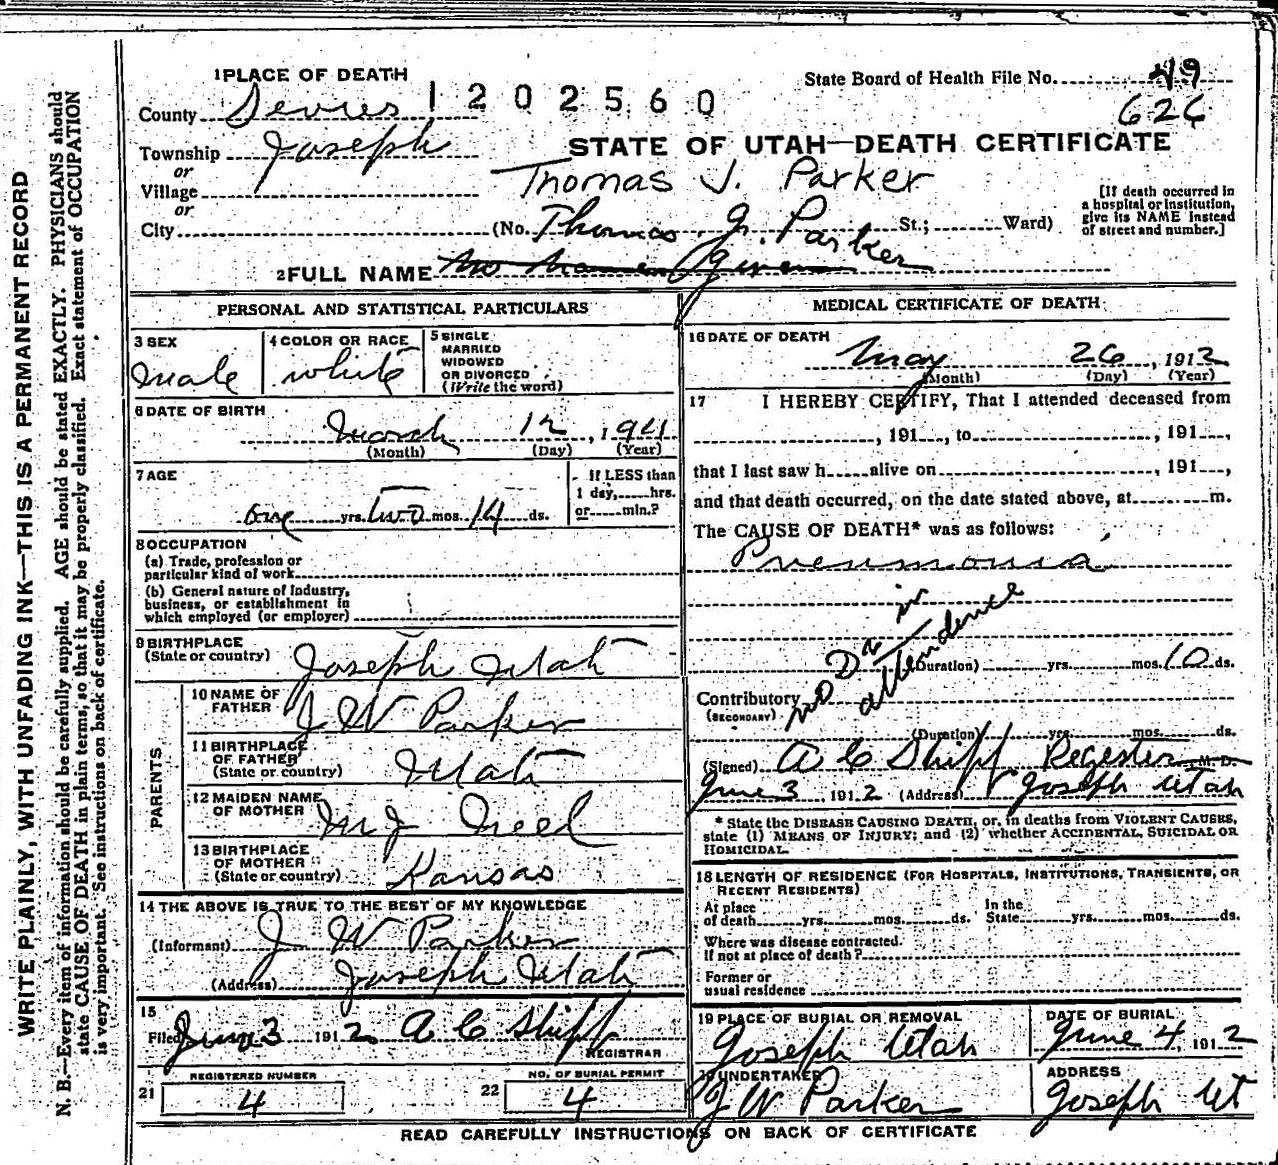 WRITE PLAINLY, WITH UNFADING INK—THIS IS A PERMANENT RECORD
N. B.—Every item of information should be carefully supplied. AGE should be stated EXACTLY. PHYSICIANS should
state CAUSE OF DEATH in plain terms, so that it may be properly classified. Exact statement of OCCUPATION
is very important. See instructions on back of certificate.
1 PLACE OF DEATH
State Board of Health File No. 49
County Sevier 1202560
626
Township Joseph
STATE OF UTAH—DEATH CERTIFICATE
or
Village
Thomas J. Parker
or
City (No. Thomas J. Parker St.; Ward)
[If death occurred in
a hospital or institution,
give its NAME instead
of street and number.]
2 FULL NAME No Name Given
PERSONAL AND STATISTICAL PARTICULARS
3 SEX
Male
4 COLOR OR RACE
white
5 SINGLE
MARRIED
WIDOWED
OR DIVORCED
(Write the word)
6 DATE OF BIRTH
March 12, 1911
(Month) (Day) (Year)
7 AGE
one yrs. two mos. 14 ds.
If LESS than
1 day, hrs.
or min.?
8 OCCUPATION
(a) Trade, profession or
particular kind of work
(b) General nature of industry,
business, or establishment in
which employed (or employer)
9 BIRTHPLACE
(State or country) Joseph Utah
PARENTS
10 NAME OF
FATHER J W Parker
11 BIRTHPLACE
OF FATHER
(State or country) Utah
12 MAIDEN NAME
OF MOTHER M J Neel
13 BIRTHPLACE
OF MOTHER
(State or country) Kansas
14 THE ABOVE IS TRUE TO THE BEST OF MY KNOWLEDGE
(Informant) J W Parker
(Address) Joseph Utah
15
Filed June 3 1912 A C Shipp
REGISTRAR
REGISTERED NUMBER
21 4
NO. OF BURIAL PERMIT
22 4
MEDICAL CERTIFICATE OF DEATH
16 DATE OF DEATH
May 26, 1912
(Month) (Day) (Year)
17 I HEREBY CERTIFY, That I attended deceased from
, 191 , to , 191 ,
that I last saw h alive on , 191 ,
and that death occurred, on the date stated above, at m.
The CAUSE OF DEATH* was as follows:
Pneumonia
no Dr in
attendence
(Duration) yrs. mos. 10 ds.
Contributory
(SECONDARY)
(Duration) yrs. mos. ds.
(Signed) A C Shipp Regester M. D.
June 3, 1912 (Address) Joseph Utah
* State the DISEASE CAUSING DEATH, or, in deaths from VIOLENT CAUSES,
state (1) MEANS OF INJURY; and (2) whether ACCIDENTAL, SUICIDAL OR
HOMICIDAL.
18 LENGTH OF RESIDENCE (FOR HOSPITALS, INSTITUTIONS, TRANSIENTS, OR
RECENT RESIDENTS)
At place
of death yrs. mos. ds.
In the
State yrs. mos. ds.
Where was disease contracted.
If not at place of death?
Former or
usual residence
19 PLACE OF BURIAL OR REMOVAL
Joseph Utah
DATE OF BURIAL
June 4, 1912
20 UNDERTAKER
J W Parker
ADDRESS
Joseph Ut
READ CAREFULLY INSTRUCTIONS ON BACK OF CERTIFICATE